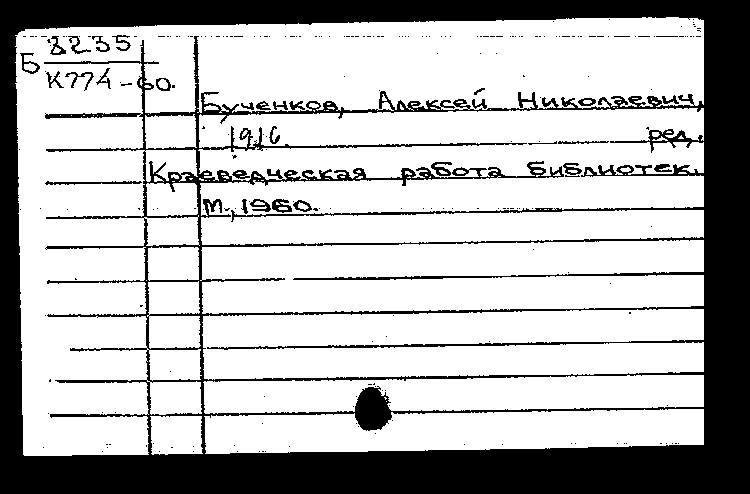 Б 3235
К774-60.
Бученков, Алексей Николаевич,
1916. ред.
Краеведческая работа библиотек.
М., 1960.